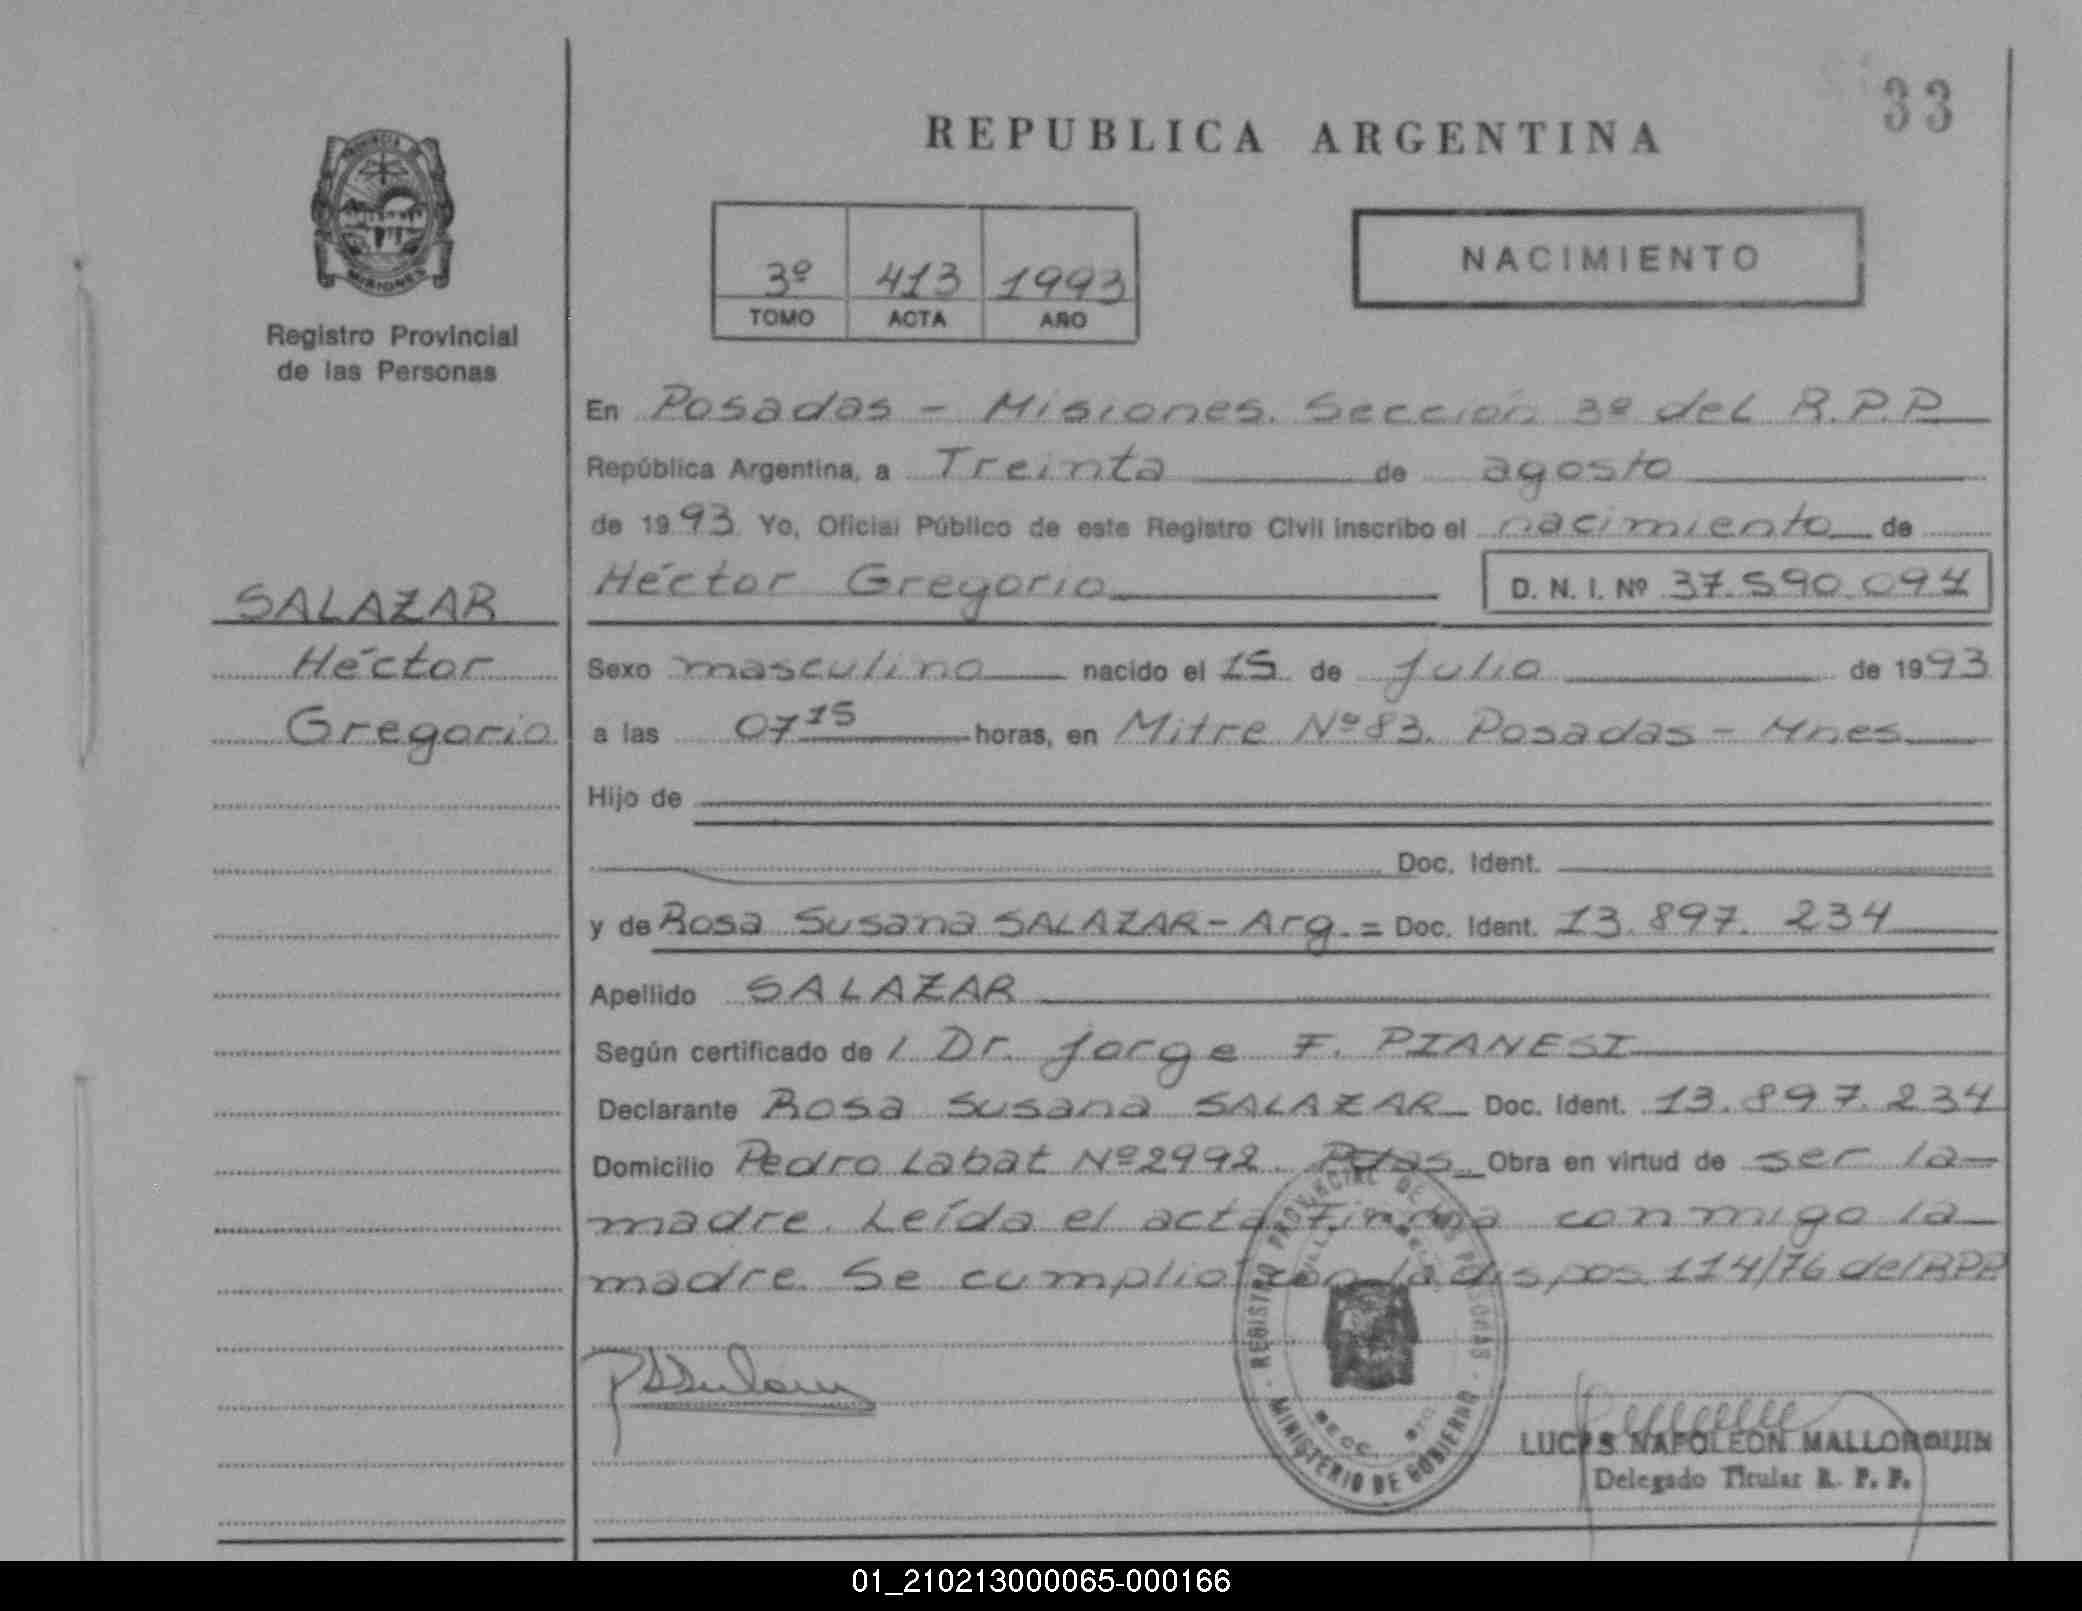 33
REPUBLICA ARGENTINA
PROVINCIA DE
MISIONES
Registro Provincial
de las Personas
3º 413 1993
TOMO ACTA AÑO
NACIMIENTO
En Posadas - Misiones. Sección 3º del R.P.P
República Argentina, a Treinta de agosto
de 1993 Yo, Oficial Público de este Registro Civil inscribo el nacimiento de
Héctor Gregorio D. N. I. Nº 37.590.094
SALAZAR
Héctor
Gregorio
Sexo masculino nacido el 15 de Julio de 1993
a las 07 15 horas, en Mitre Nº 83. Posadas - Mnes
Hijo de
Doc. Ident.
y de Rosa Susana SALAZAR - Arg. = Doc. Ident. 13.897.234
Apellido SALAZAR
Según certificado de / Dr. Jorge F. PIANESI
Declarante Rosa Susana SALAZAR Doc. Ident. 13.897.234
Domicilio Pedro Labat Nº 2992. Pdas Obra en virtud de ser la
madre. Leída el acta Firma conmigo la
madre. Se cumplió con la dispos. 114/76 del RPP
REGISTRO PROVINCIAL DE LAS PERSONAS
MINISTERIO DE GOBIERNO
LUCAS NAPOLEON MALLORQUIN
Delegado Titular R. P. P.
01_210213000065-000166